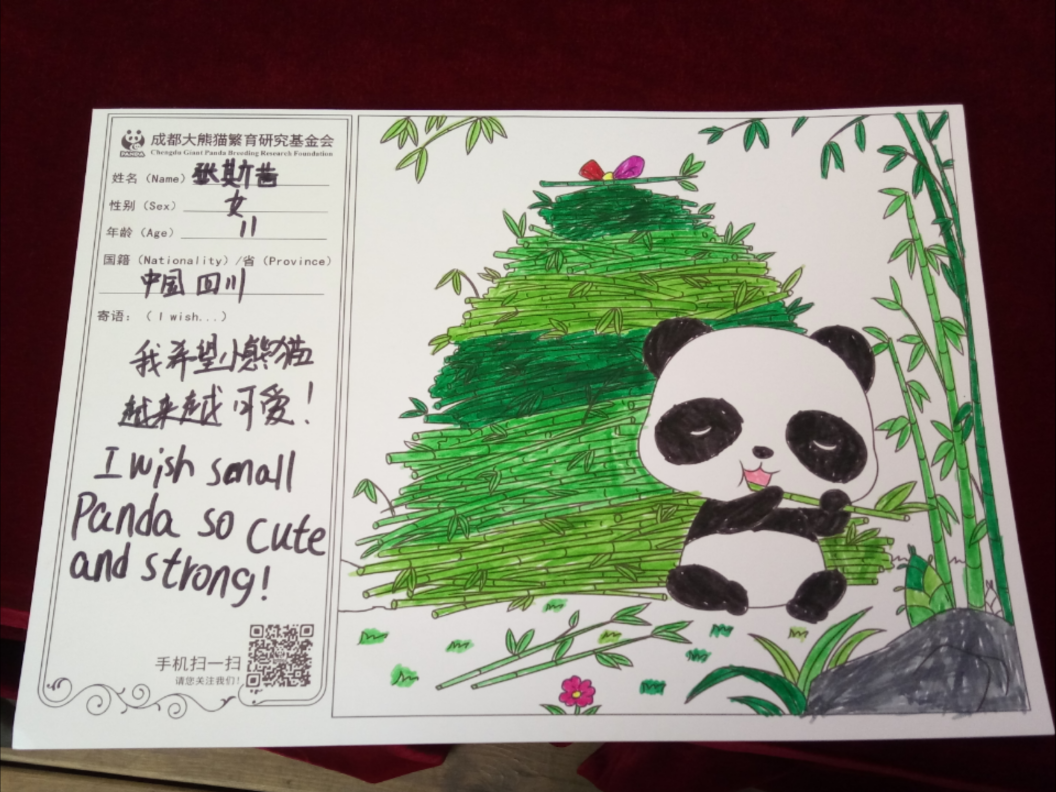 成都大熊猫繁育研究基金会
Chengdu Giant Panda Breeding Research Foundation
PANDA
姓名（Name）张斯茜
性别（Sex） 女
年龄（Age） 11
国籍（Nationality）/省（Province）
中国 四川
寄语：（I wish...）
我希望小熊猫
越来越可爱！
I wish small
Panda so cute
and strong!
手机扫一扫
请您关注我们！